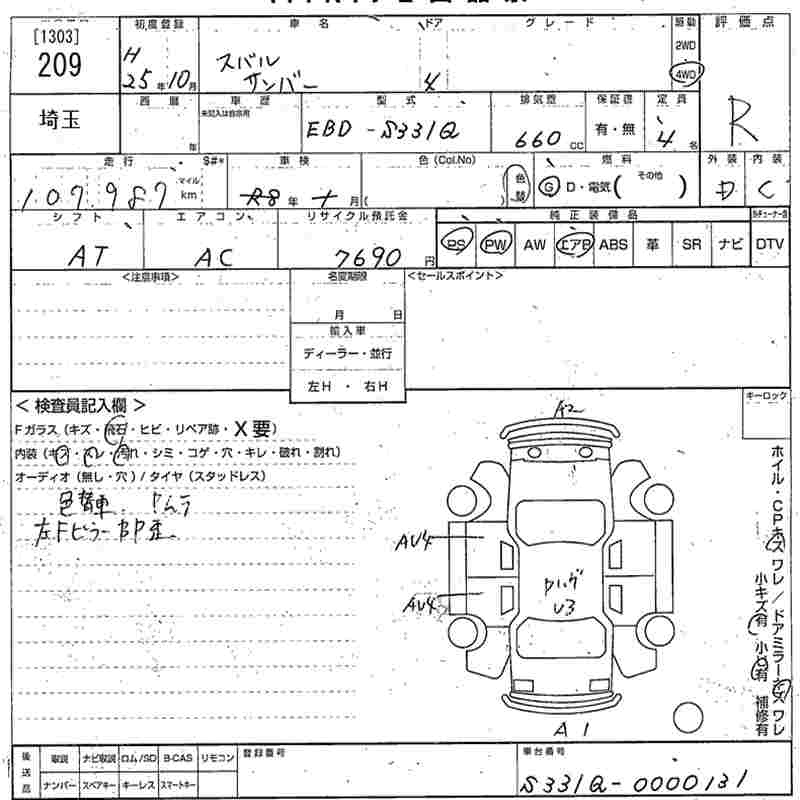 [1303]
209
初度登録
車名
ドア
グレード
駆動
評価点
2WD
4WD
H
25年10月
スバル
サンバー
4
埼玉
西暦
年
車歴
未記入は自家用
型式
EBD-S331Q
排気量
660cc
保証書
有・無
定員
4名
R
走行
$#*
マイル
km
107,987
車検
R8年 月
色(Col.No)
色替
燃料
G D・電気( その他 )
外装
D
内装
C
シフト
AT
エアコン
AC
リサイクル預託金
7690円
純正装備品
PS PW AW エアB ABS 革 SR ナビ DTV
<注意事項>
名変期限
月 日
輸入車
ディーラー・並行
左H・右H
<セールスポイント>
<検査員記入欄>
Fガラス(キズ・飛石・ヒビ・リペア跡・X要)
内装(キズ・スレ・汚れ・シミ・コゲ・穴・キレ・破れ・割れ)
オーディオ(無し・穴)/タイヤ(スタッドレス)
色替車 ムラ
左Fピラー BP歪
キーロック
A2
AU4
AU4
U3
A1
ホイル・CPキズ ワレ/ドアミラーキズ ワレ
小キズ有 小凹有 補修有
後送品
取説 ナビ取説 ロム/SD B-CAS リモコン
ナンバー スペアキー キーレス スマートキー
登録番号
車台番号
S331Q-0000131